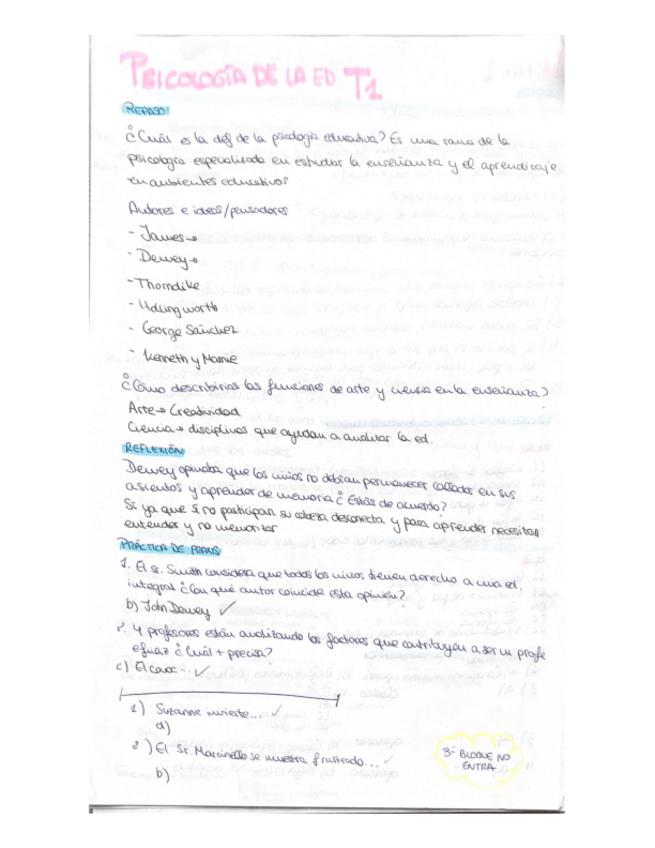 PSICOLOGÍA DE LA ED T1
REPASO
¿Cuál es la def de la psicología educativa? Es una rama de la
psicología especializada en estudiar la enseñanza y el aprendizaje
en ambientes educativos
Autores e ideas/pensadores
- James→
- Dewey→
- Thorndike
- Hollingworth
- George Sánchez
- Kenneth y Mamie
¿Cómo describirías las funciones de arte y ciencia en la enseñanza?
Arte→ Creatividad
Ciencia→ disciplinas que ayudan a analizar la ed.
REFLEXIÓN
Dewey opinaba que los niños no debían permanecer callados en sus
asientos y aprender de memoria ¿Estás de acuerdo?
Sí ya que si no participan su cabeza desconecta y para aprender necesitan
entender y no memorizar
PRÁCTICA DE PRAXIS
1. El sr. Smith considera que todos los niños tienen derecho a una ed.
integral ¿Con qué autor coincide esta opinión?
b) John Dewey ✓
2. 4 profesores están analizando los factores que contribuyen a ser un profe
eficaz ¿Cuál + precisa?
c) El conoc... ✓
1) Suzanne invierte... ✓
d)
2) El Sr. Marcinello se muestra frustrado... ✓
b)
3º BLOQUE NO
ENTRA